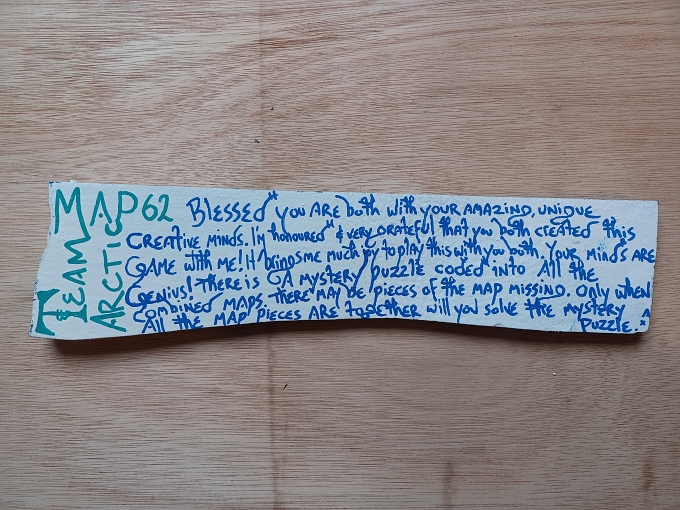 MAP62
TEAM
ARCTIC
Blessed" you ARE both with your AMAZING, UNIQUE
CREATIVE MINDS. I'm honoured" & very grateful that you both created this
GAME with ME! It brings me much joy to play this with you both. Your minds ARE
Genius! There is "A mystery puzzle coded" into All the
Combined MAPS. There may be pieces of the MAP missing. Only when
All the MAP pieces ARE together will you solve the mystery
puzzle."